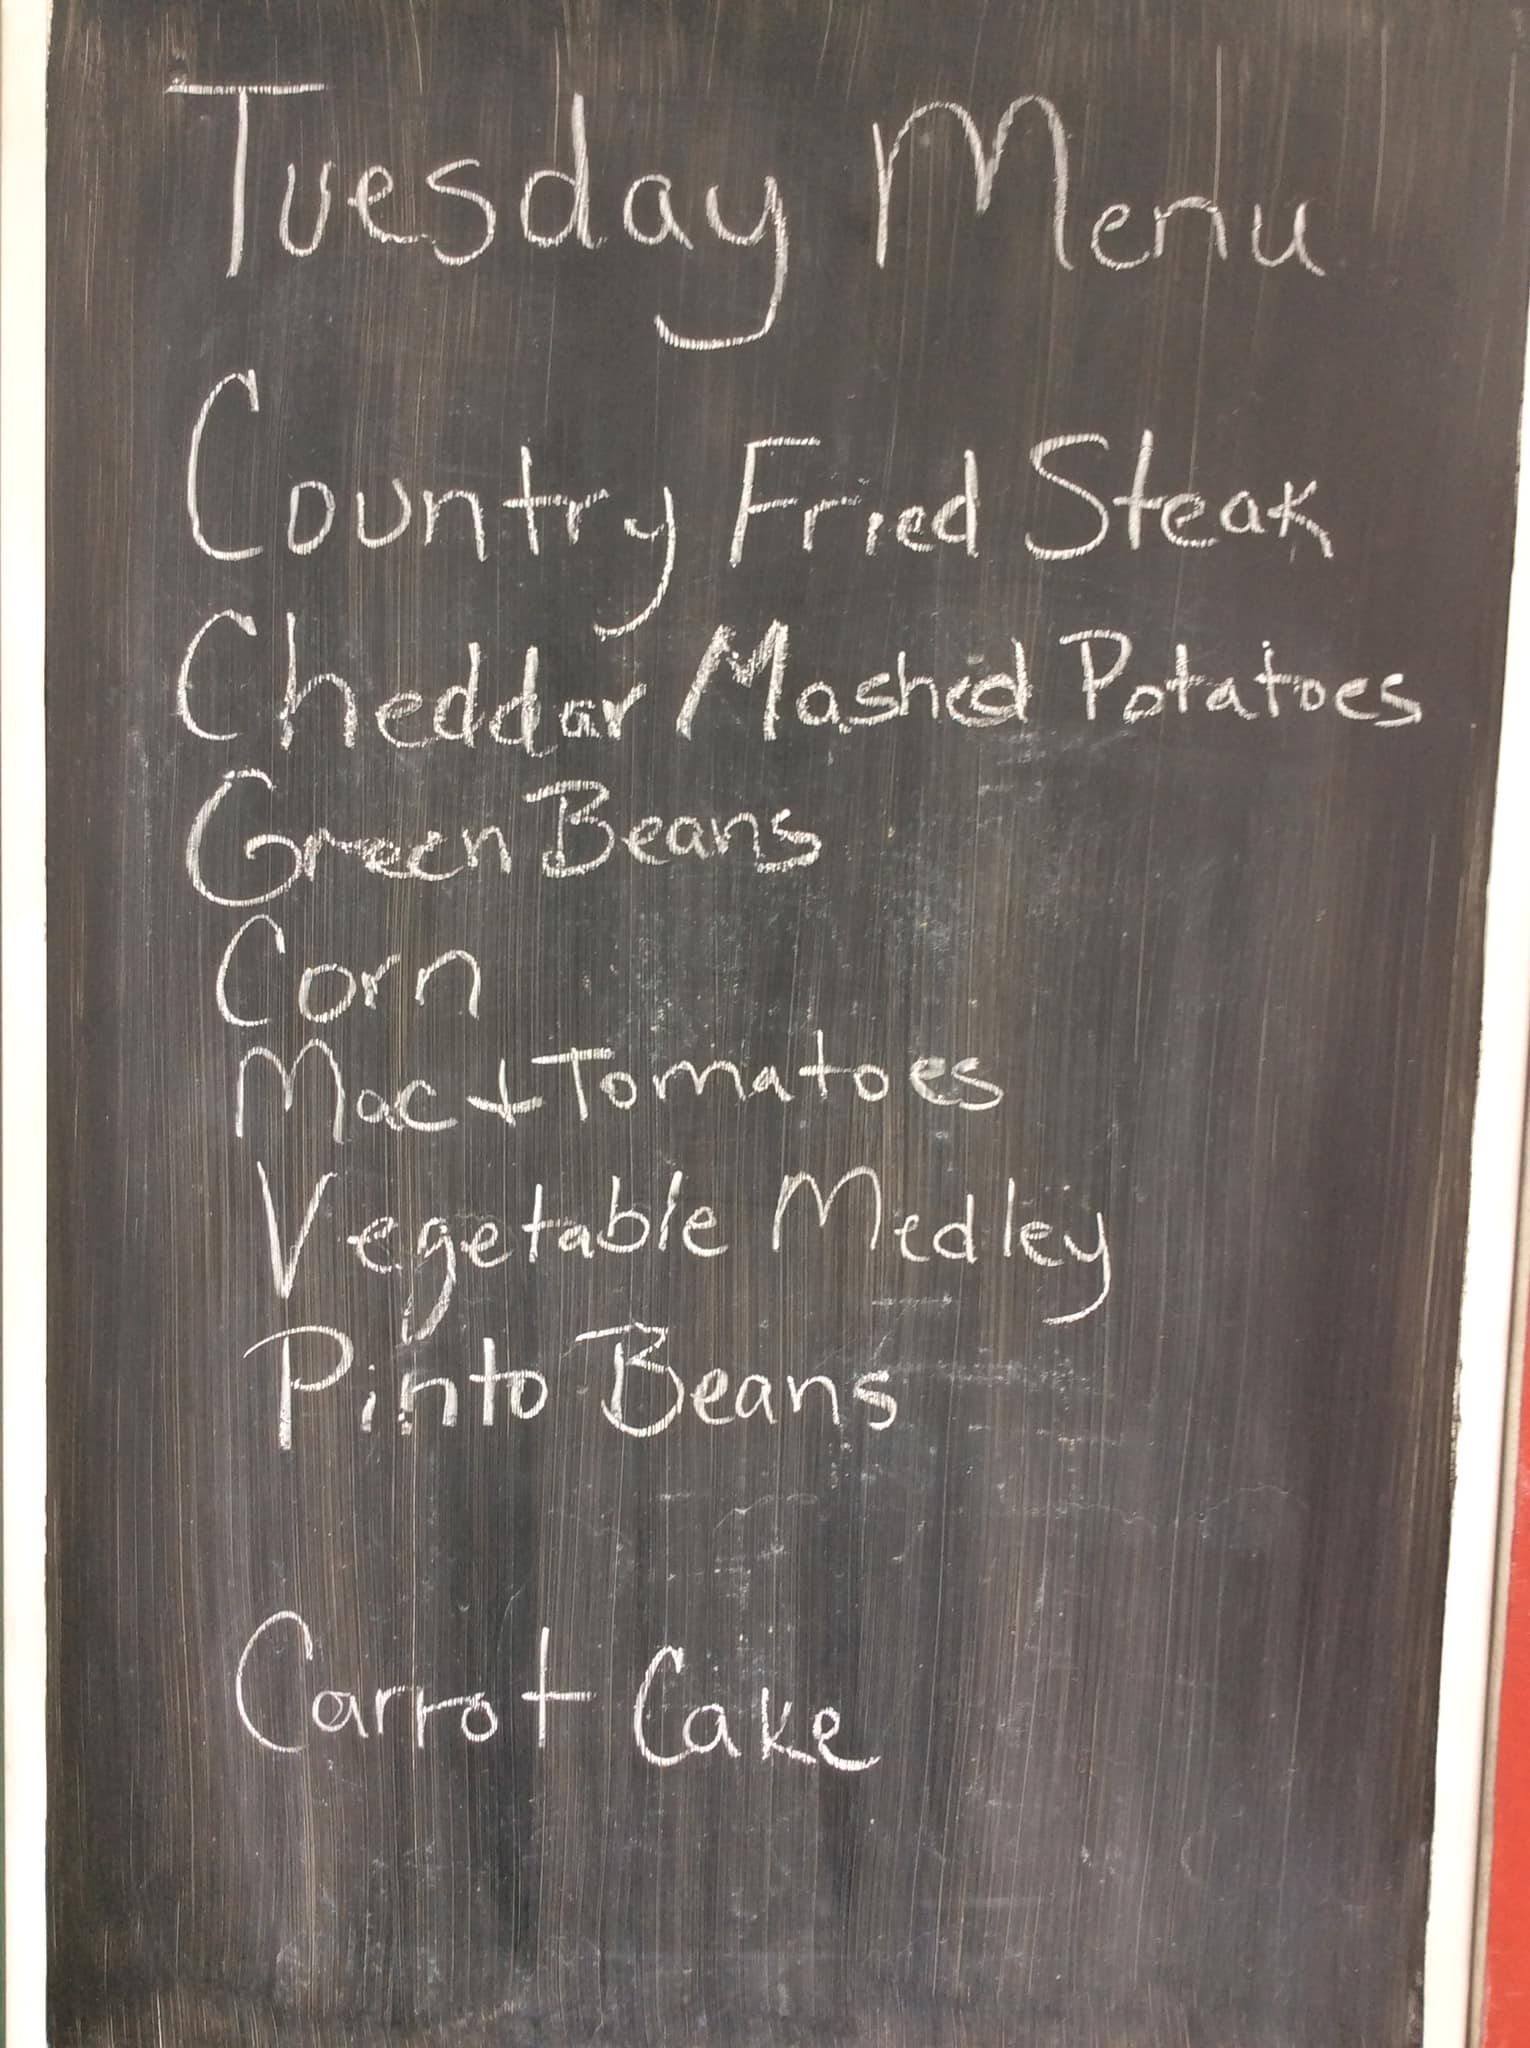 Tuesday Menu
Country Fried Steak
Cheddar Mashed Potatoes
Green Beans
Corn
Mac + Tomatoes
Vegetable Medley
Pinto Beans
Carrot Cake